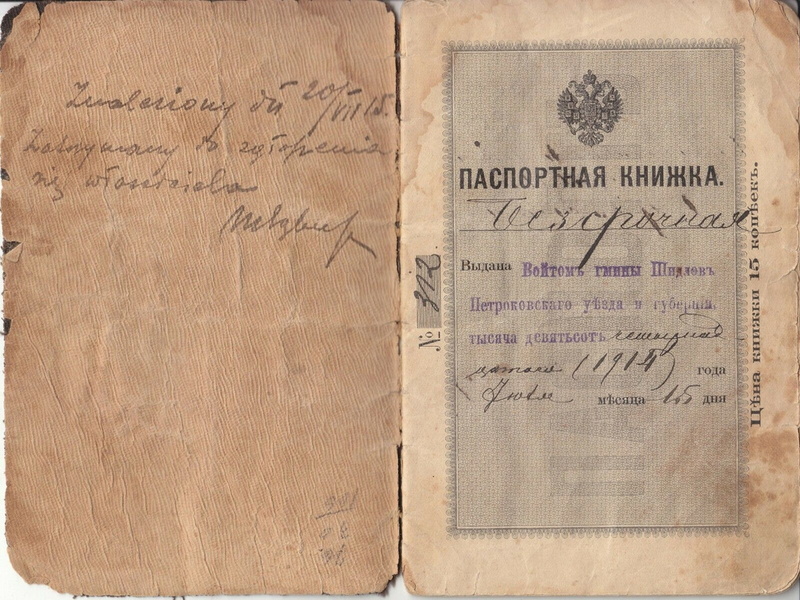 Znaleziony dn 20/VII 15.
Zatrzymany do zgłoszenia
się właściciela
ПАСПОРТНАЯ КНИЖКА.
Безсрочная
Выдана Войтомъ гмины Шидловъ
Петроковскаго уѣзда и губерніи,
тысяча девятьсотъ четырнад
цатаго (1914) года
Іюля мѣсяца 15 дня
№ 312
Цѣна книжки 15 копѣекъ.